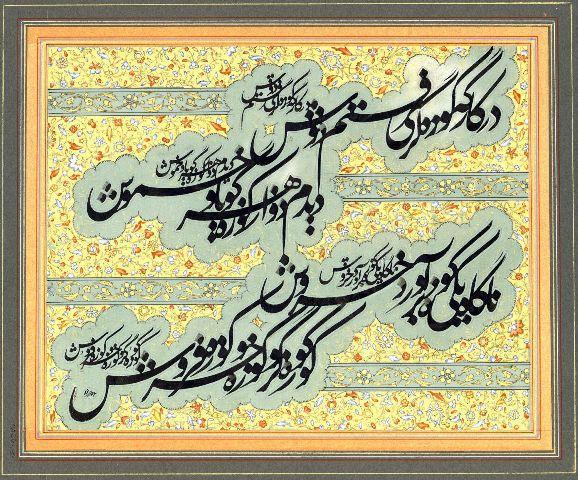 در کارگه کوزه گری رفتم دوش
در کارگه کوزه گری رفتم دوش
دیدم دو هزار کوزه گویا و خموش
دیدم دو هزار کوزه گویا و خموش
ناگاه یکی کوزه برآورد خروش
ناگاه یکی کوزه برآورد خروش
کو کوزه گر و کوزه خر و کوزه فروش
کو کوزه گر و کوزه خر و کوزه فروش